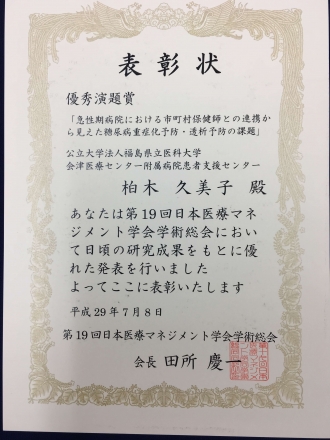 表彰状
優秀演題賞
「急性期病院における市町村保健師との連携か
ら見えた糖尿病重症化予防・透析予防の課題」
公立大学法人福島県立医科大学
会津医療センター附属病院患者支援センター
柏木 久美子 殿
あなたは第19回日本医療マネ
ジメント学会学術総会におい
て日頃の研究成果をもとに優
れた発表を行いました
よってここに表彰いたします
平成29年7月8日
第19回日本医療マネジメント学会学術総会
会長 田所 慶一